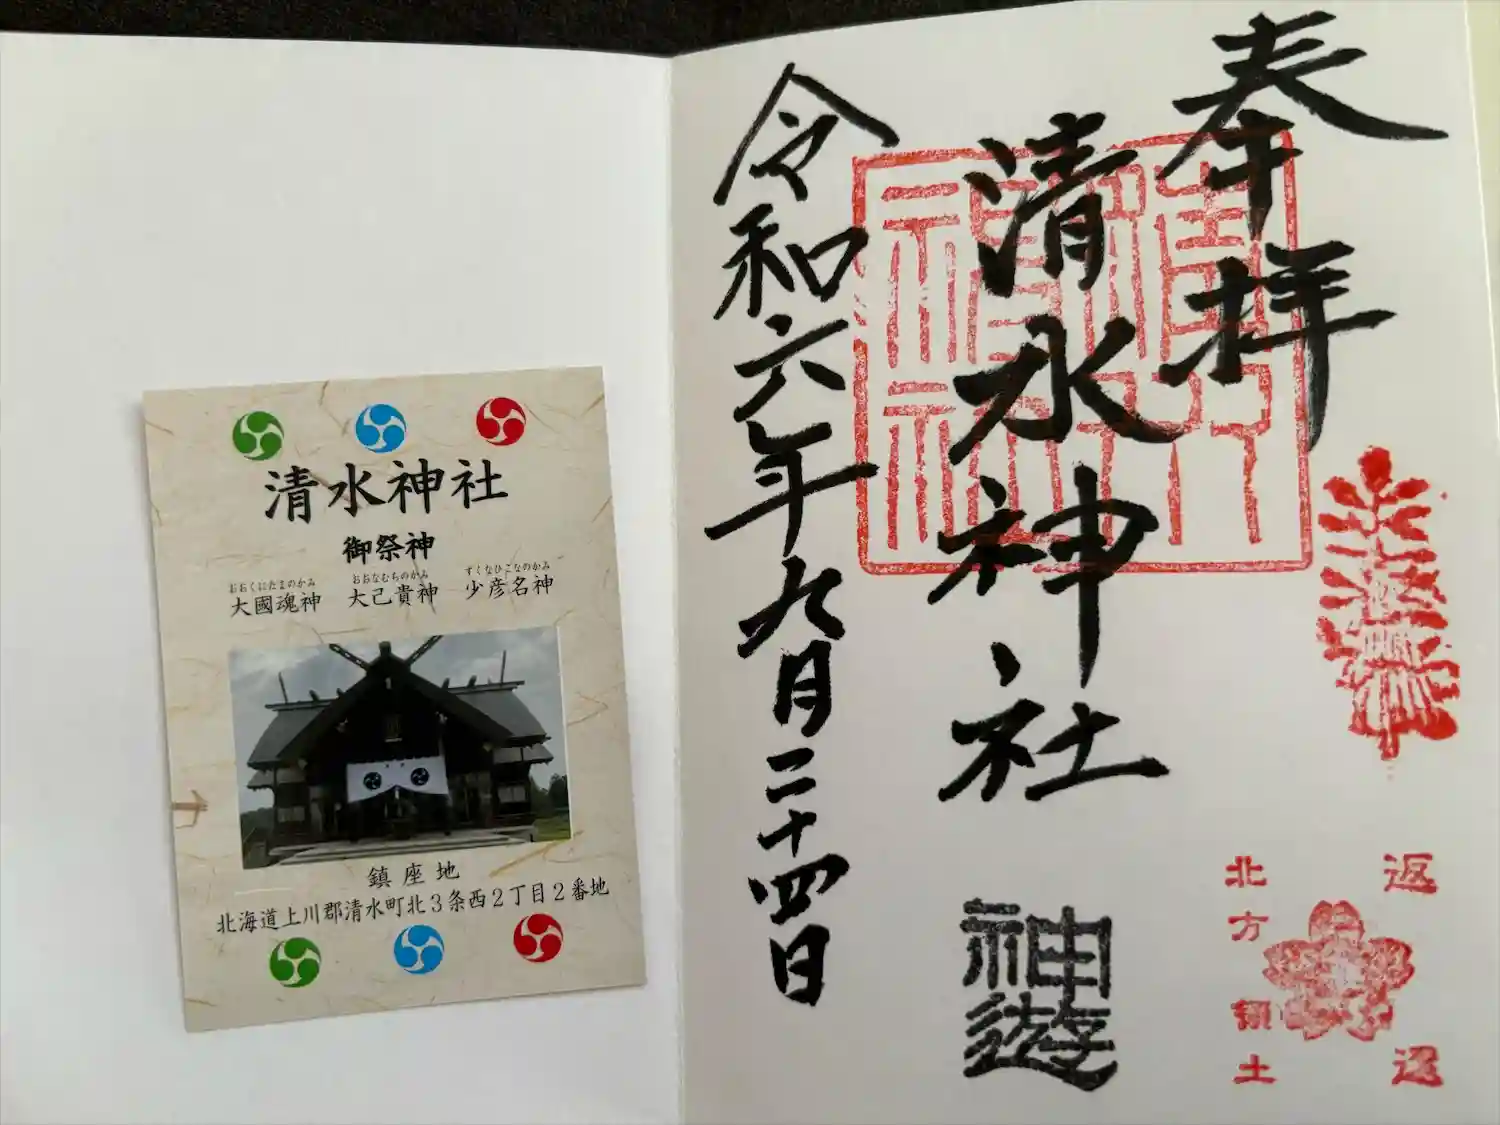 奉拝
清水神社
令和六年九月二十四日
神遊
北方領土
返還
清水神社
御祭神
おおくにたまのかみ おおなむちのかみ すくなひこなのかみ
大國魂神 大己貴神 少彦名神
鎮座地
北海道上川郡清水町北3条西2丁目2番地